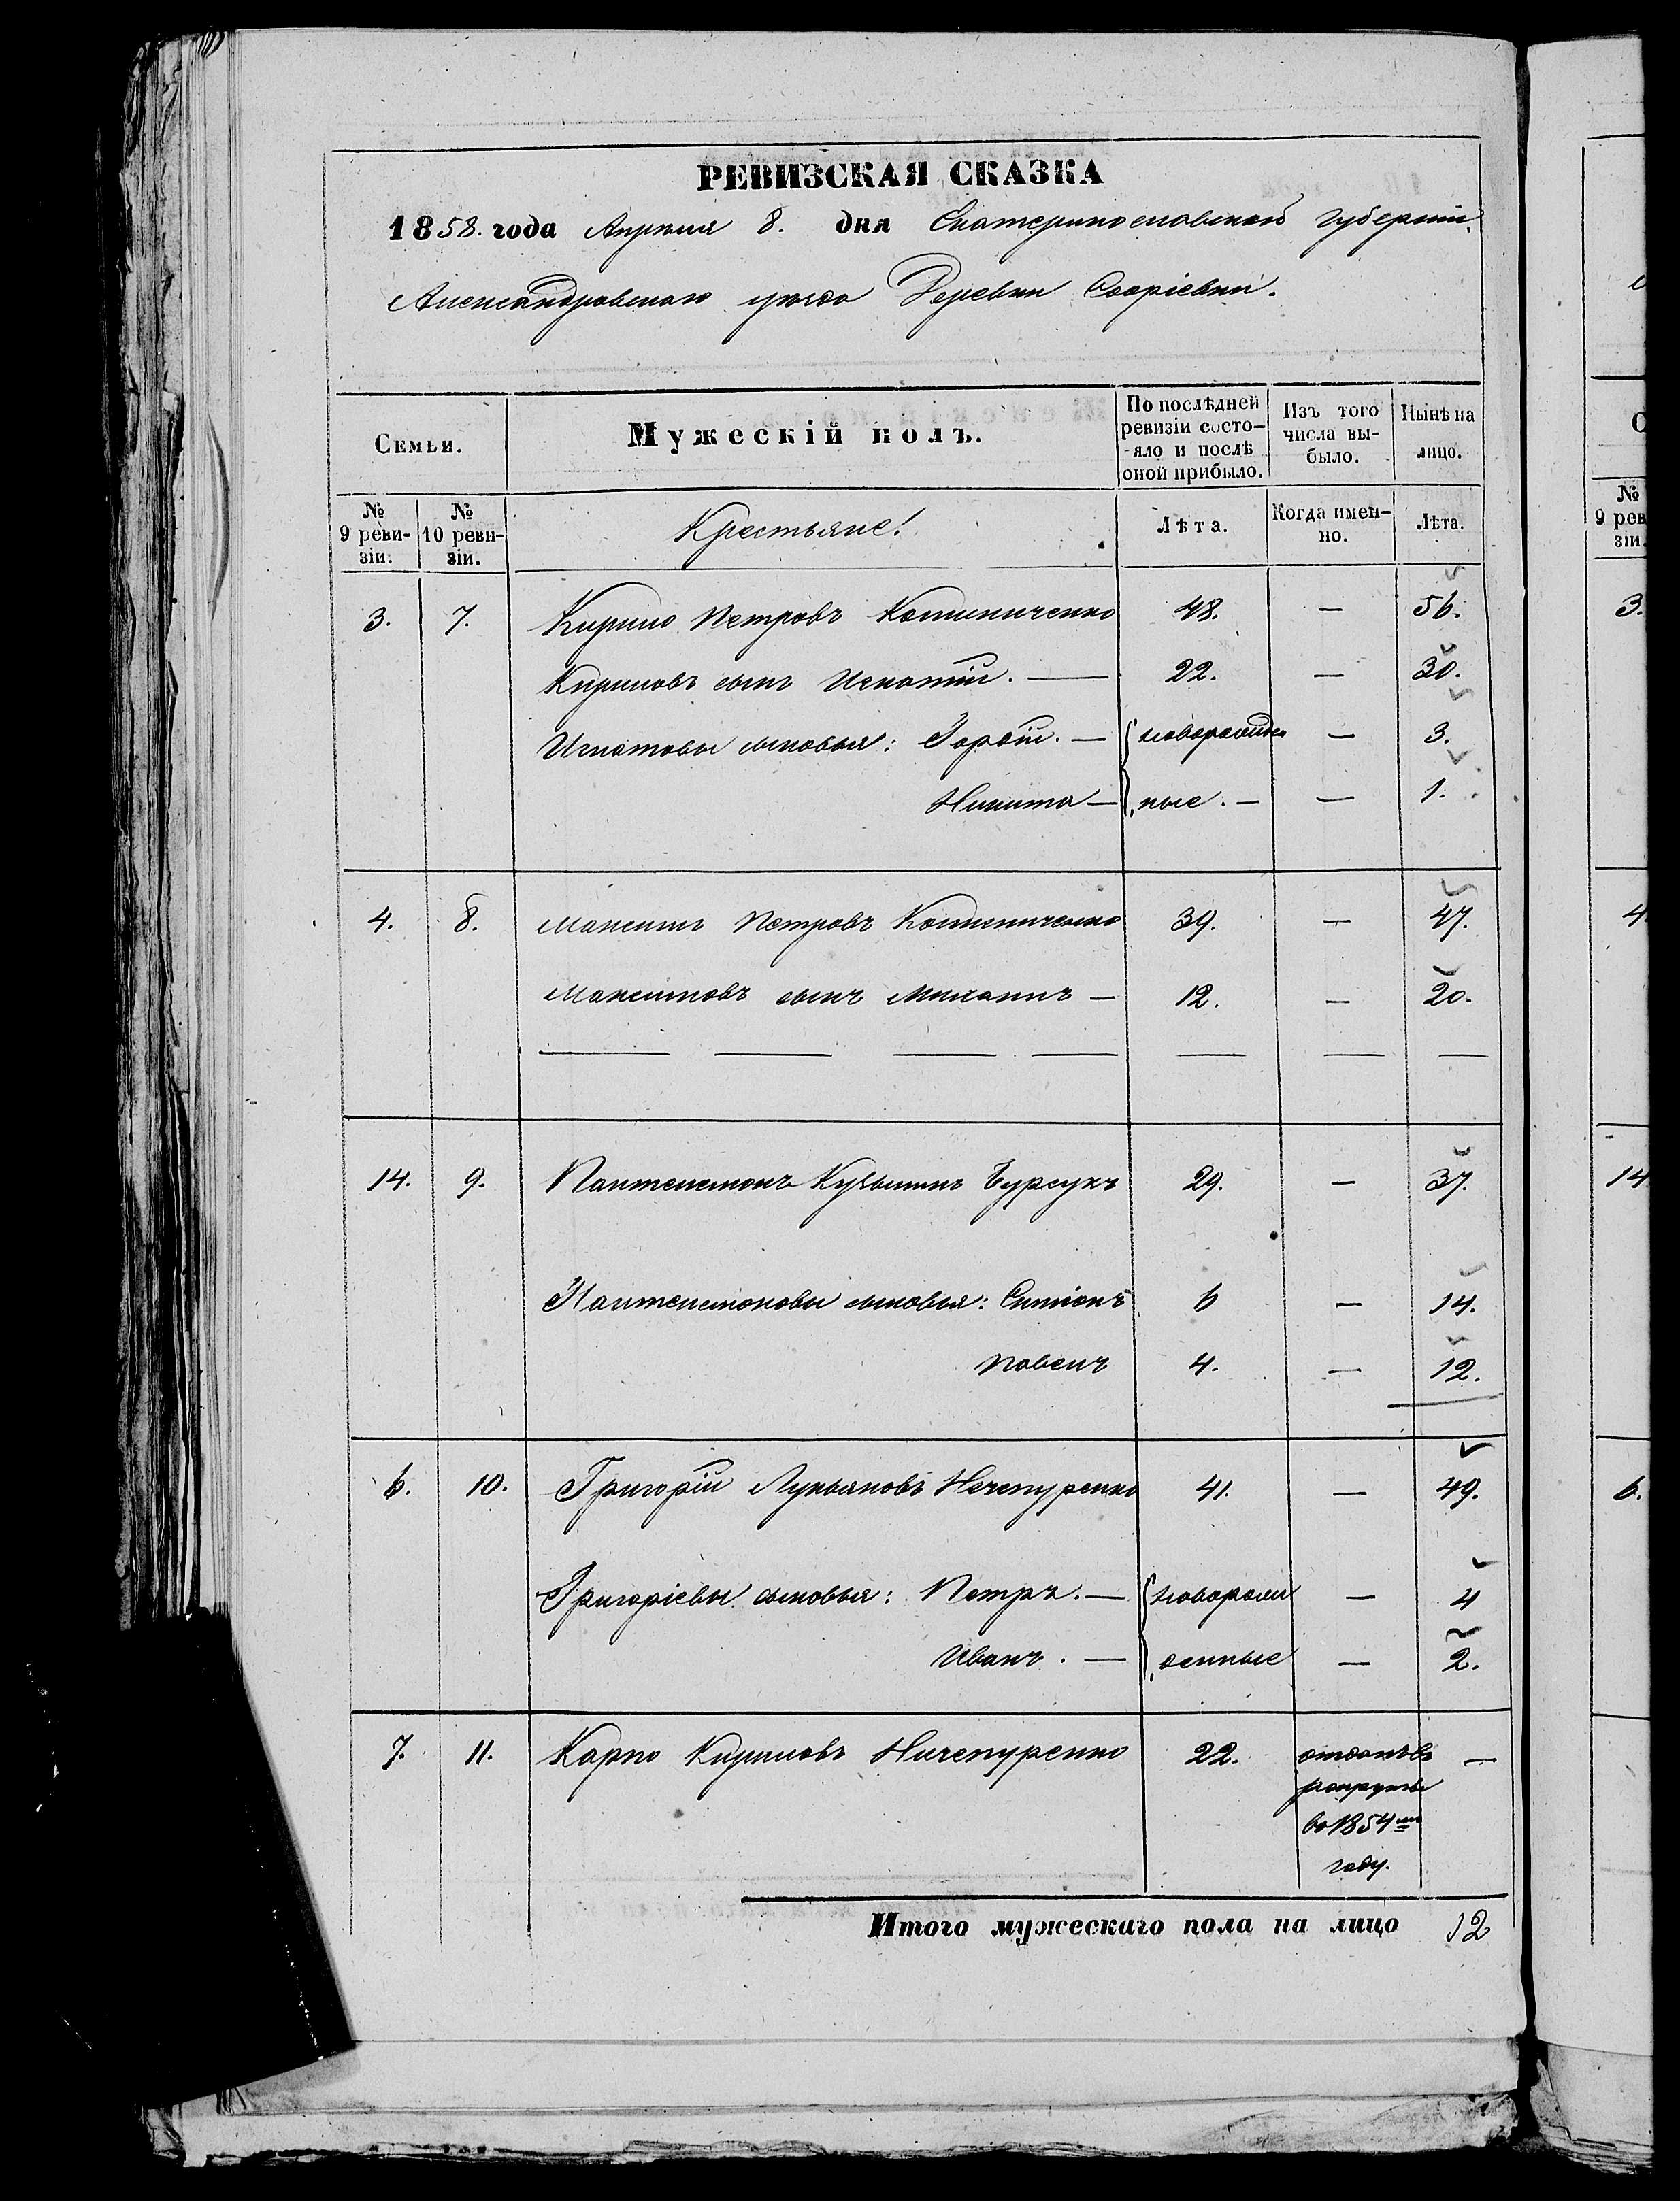 РЕВИЗСКАЯ СКАЗКА
1858. года Апрѣля 8. дня Екатеринославской губерніи,
Александровскаго уѣзда Деревни Софіевки.
Семьи.
Мужескій полъ.
По послѣдней ревизіи состо-яло и послѣ оной прибыло.
Изъ того числа вы-было.
Нынѣ на лицо.
№ 9 реви-зіи.
№ 10 реви-зіи.
Крестьяне!
Лѣта.
Когда имен-но.
Лѣта.
3. 7. Кирило Петровъ 48. — 56.
Кириловъ сынъ Игнатій. — 22. — 30.
Игнатовы сыновья: — новорожден — 3.
Никита — ные. — — 1.
4. 8. Максимъ Петровъ 39. — 47.
Максимовъ сынъ Михаилъ — 12. — 20.
14. 9. Пантелемонъ Кузьминъ Бурсукъ 29. — 37.
Пантелемоновы сыновья: Симіонъ 6 — 14.
Павелъ 4. — 12.
6. 10. Григорій Лукьяновъ Нечепуренко 41. — 49.
Григоріевы сыновья: Петръ. — новорож — 4
Иванъ. — денные — 2.
7. 11. Карпо Кириловъ Ничепуренко 22. отданъ въ —
рекруты
во 1854мъ
году.
Итого мужескаго пола на лицо 12
№ 9 рев зіи.
3.
4
14
6.